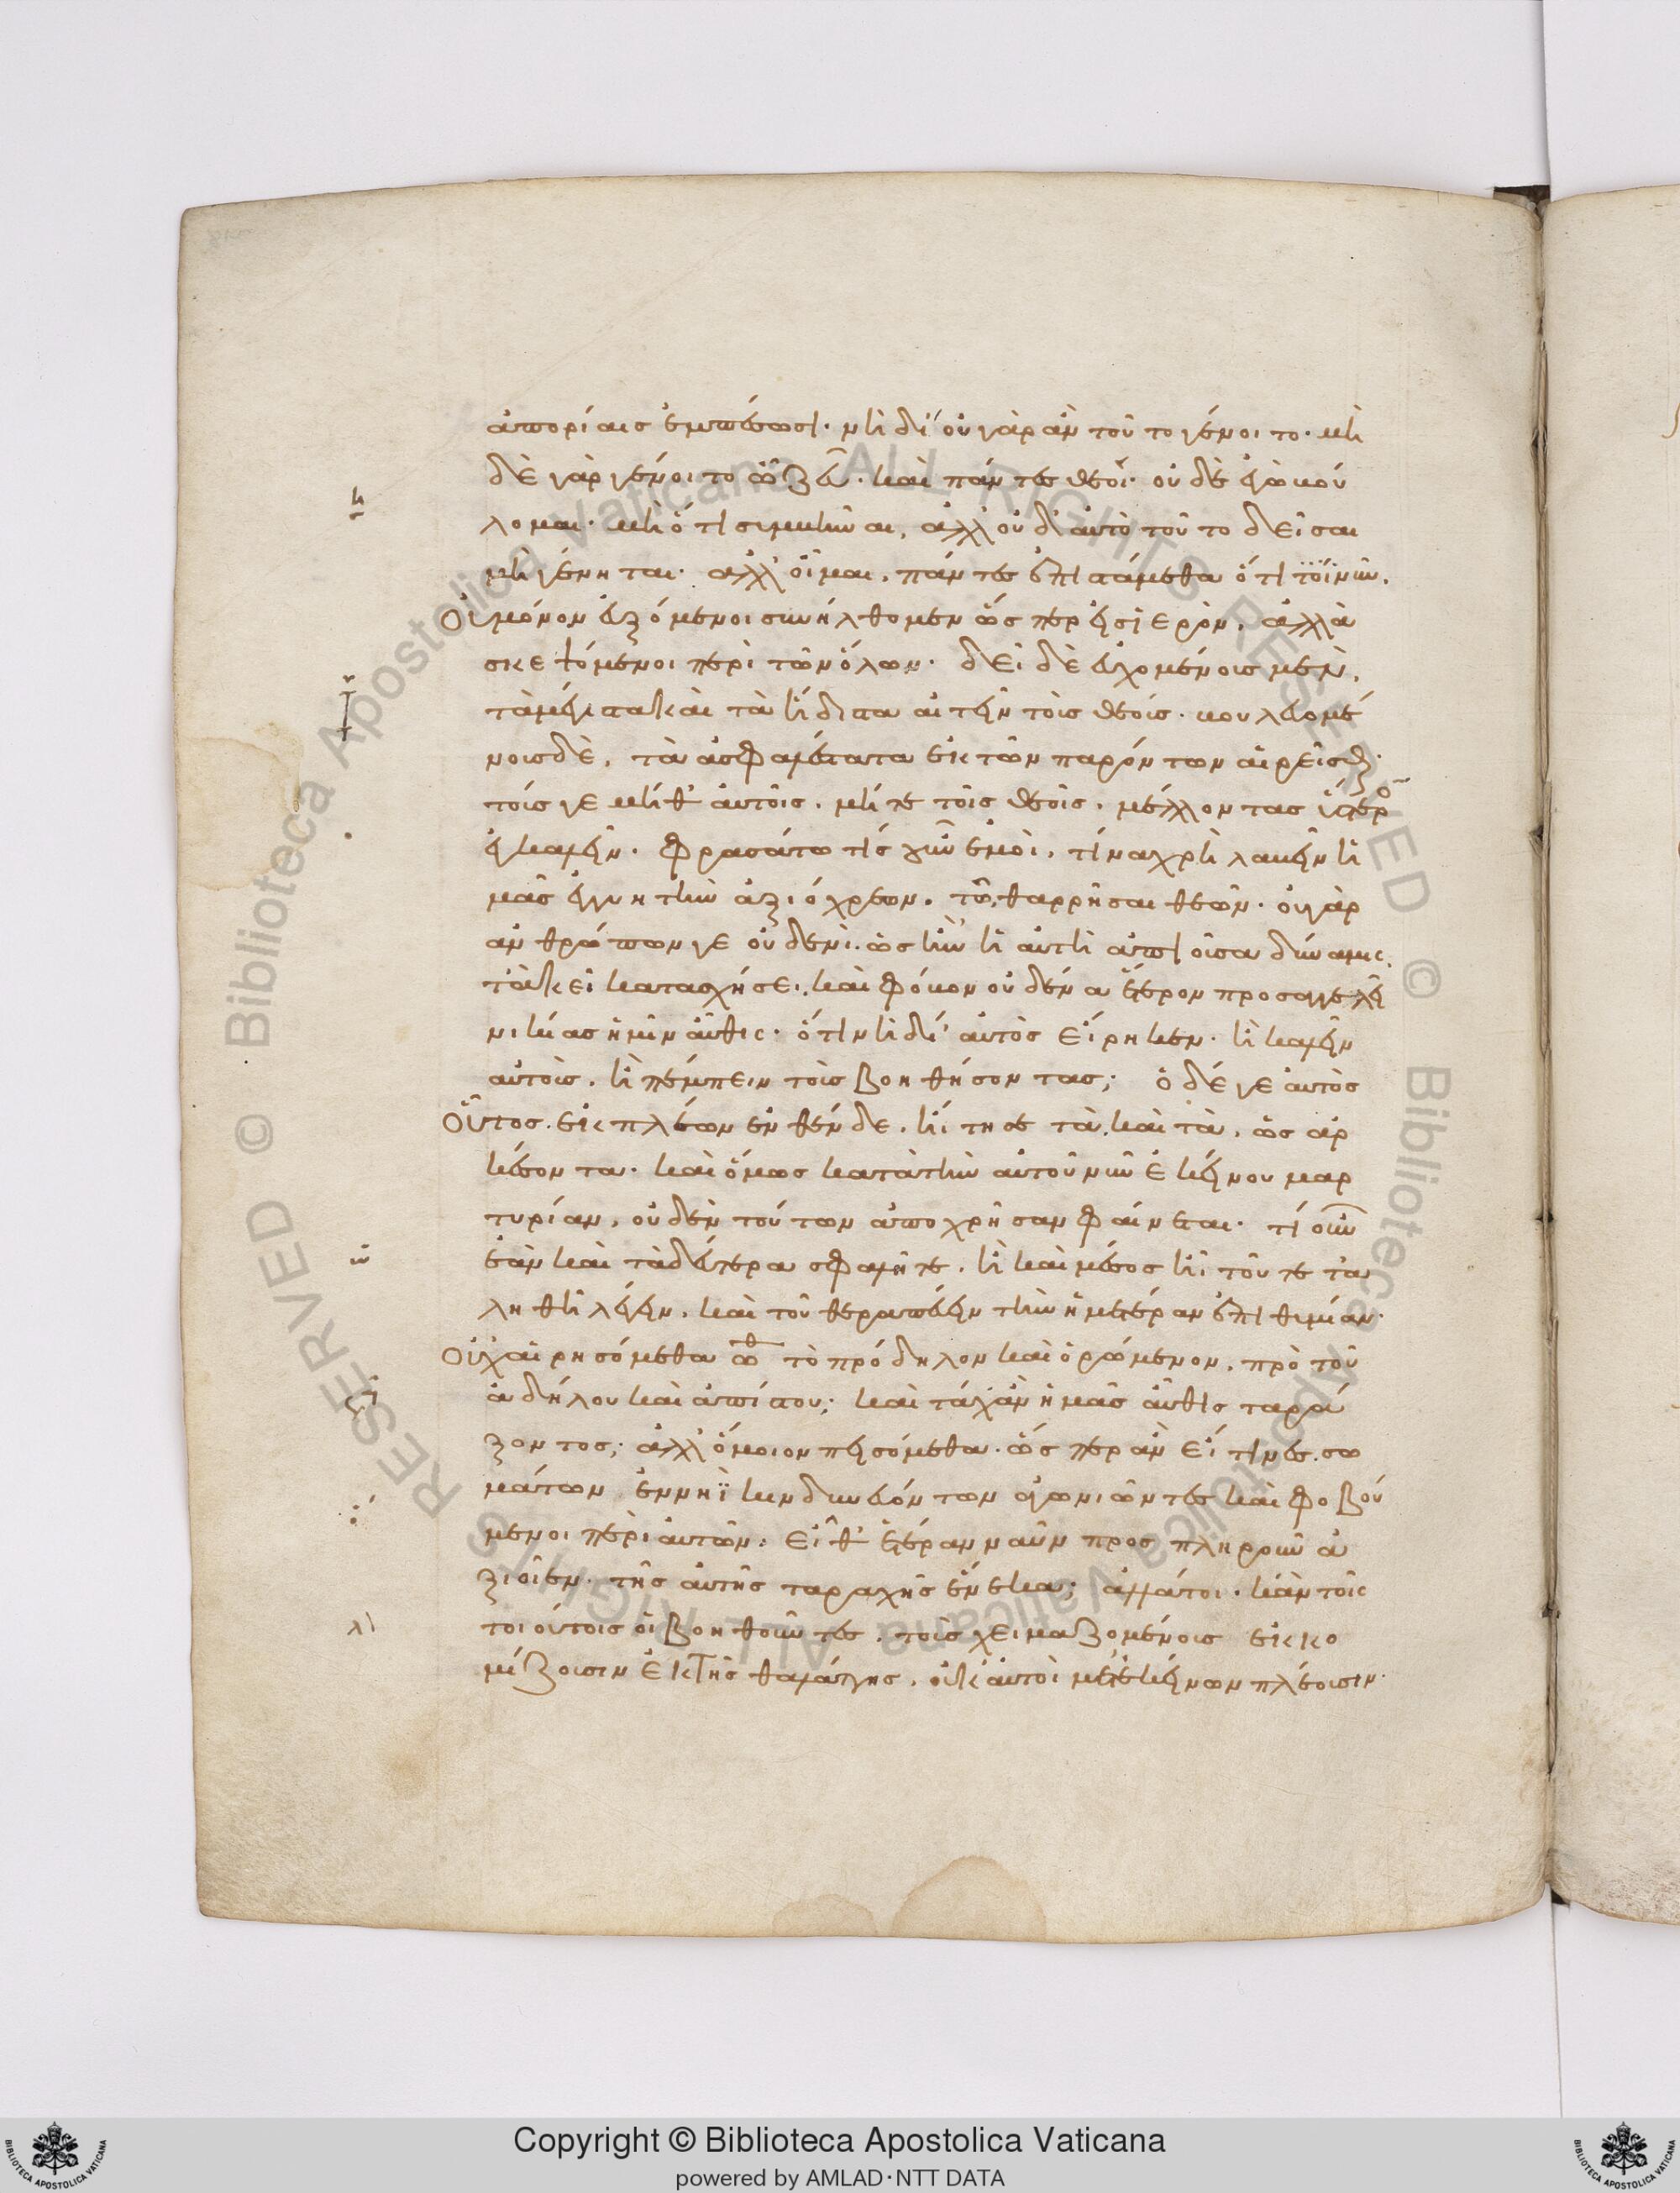 ἀπορίαις ἐμπέσωσι· μὴ δι' οὐ γὰρ ἂν τοῦτο γένοιτο· μὴ
δὲ γὰρ γένοιτο ὦ ζεῦ· καὶ πάντες θεοί· οὐδὲ ἐγὼ βού
λομαι· μὴ ὅτι συμβῆναι, ἀλλ' οὐδ' αὐτὸ τοῦτο δεῖσαι
μὴ γένηται· ἀλλ' οἶμαι, πάντες ἐπιστάμεθα ὅτι τοίνυν,
Οὐ μόνον εὐξόμενοι συνήλθομεν ὥσπερ εἰς ἱερὸν, ἀλλὰ
σκεψόμενοι περὶ τῶν ὅλων· δεῖ δὲ εὐχομένοις μὲν,
τὰ μέγιστα καὶ τὰ ἥδιστα αἰτεῖν τοῖς θεοῖς· βουλευομέ
νοις δὲ, τὰ ἀσφαλέστατα ἐκ τῶν παρόντων αἱρεῖσθαι·
τοῖς γε μήθ' αὑτοῖς, μήτε τοῖς θεοῖς, μέλλοντας ὕστερον
ἐγκαλεῖν· φρασάτω τίς γοῦν ἐμοὶ, τίνα χρὴ λαβεῖν ἡ
μᾶς ἐγγυητὴν ἀξιόχρεων, τῶ θαρρῆσαι θεῶν· οὐ γὰρ
ἀνθρώπων γε οὐδενὶ· ὡς ἢν ἡ αὐτὴ ἀπιοῦσα δύναμις,
τἀκεῖ κατασχήσει, καὶ φόβον οὐδένα ἕτερον προσαγγελεῖ
νικίας ἡμῖν αὖθις· ὅτι νὴ δί' αὐτὸς εἴρηκεν· ἢ καλεῖν
αὐτοὺς, ἢ πέμπειν τοὺς βοηθήσοντας; ὁ δέ γε αὐτὸς
Οὗτος ἐκπλέων ἐνθένδε, ᾔτησε τὰ καὶ τὰ, ὡς ἀρ
κέσοντα· καὶ ὅμως κατὰ τὴν αὐτοῦ νῦν ἐκείνου μαρ
τυρίαν, οὐδὲν τούτων ἀποχρῆσαν φαίνεται· τί οὖν
ἐὰν καὶ τὰ δεύτερα σφαλῆτε, ἢ καὶ μέσος ᾖ τοῦ τε τἀ
ληθῆ λέγειν, καὶ τοῦ θεραπεύειν τὴν ἡμετέραν ἐπιθυμίαν·
Οὐχ αἱρησόμεθα ὦ ἀθ τὸ πρόδηλον καὶ ὁρώμενον, πρὸ τοῦ
ἀδήλου καὶ ἀπίστου; καὶ τάχ' ἂν ἡμᾶς αὖθις ταρά
ξοντος; ἀλλ' ὅμοιον πεισόμεθα· ὥσπερ ἂν εἴ τινες σω
μάτων ἐν νηῒ κινδυνευόντων ἀγωνιῶντες καὶ φοβού
μενοι περὶ αὐτῶν· εἶθ' ἑτέραν ναῦν προσπληροῦν ἀ
ξιοῖεν τῆς αὐτῆς ταραχῆς ἕνεκα; ἀλλά τοι κἀν τοῖς
τοιούτοις οἱ βοηθοῦντες, τοὺς χειμαζομένους ἐκκο
μίζουσιν ἐκ τῆς θαλάττης, οὐκ αὐτοὶ μετ' ἐκείνων πλέουσιν·